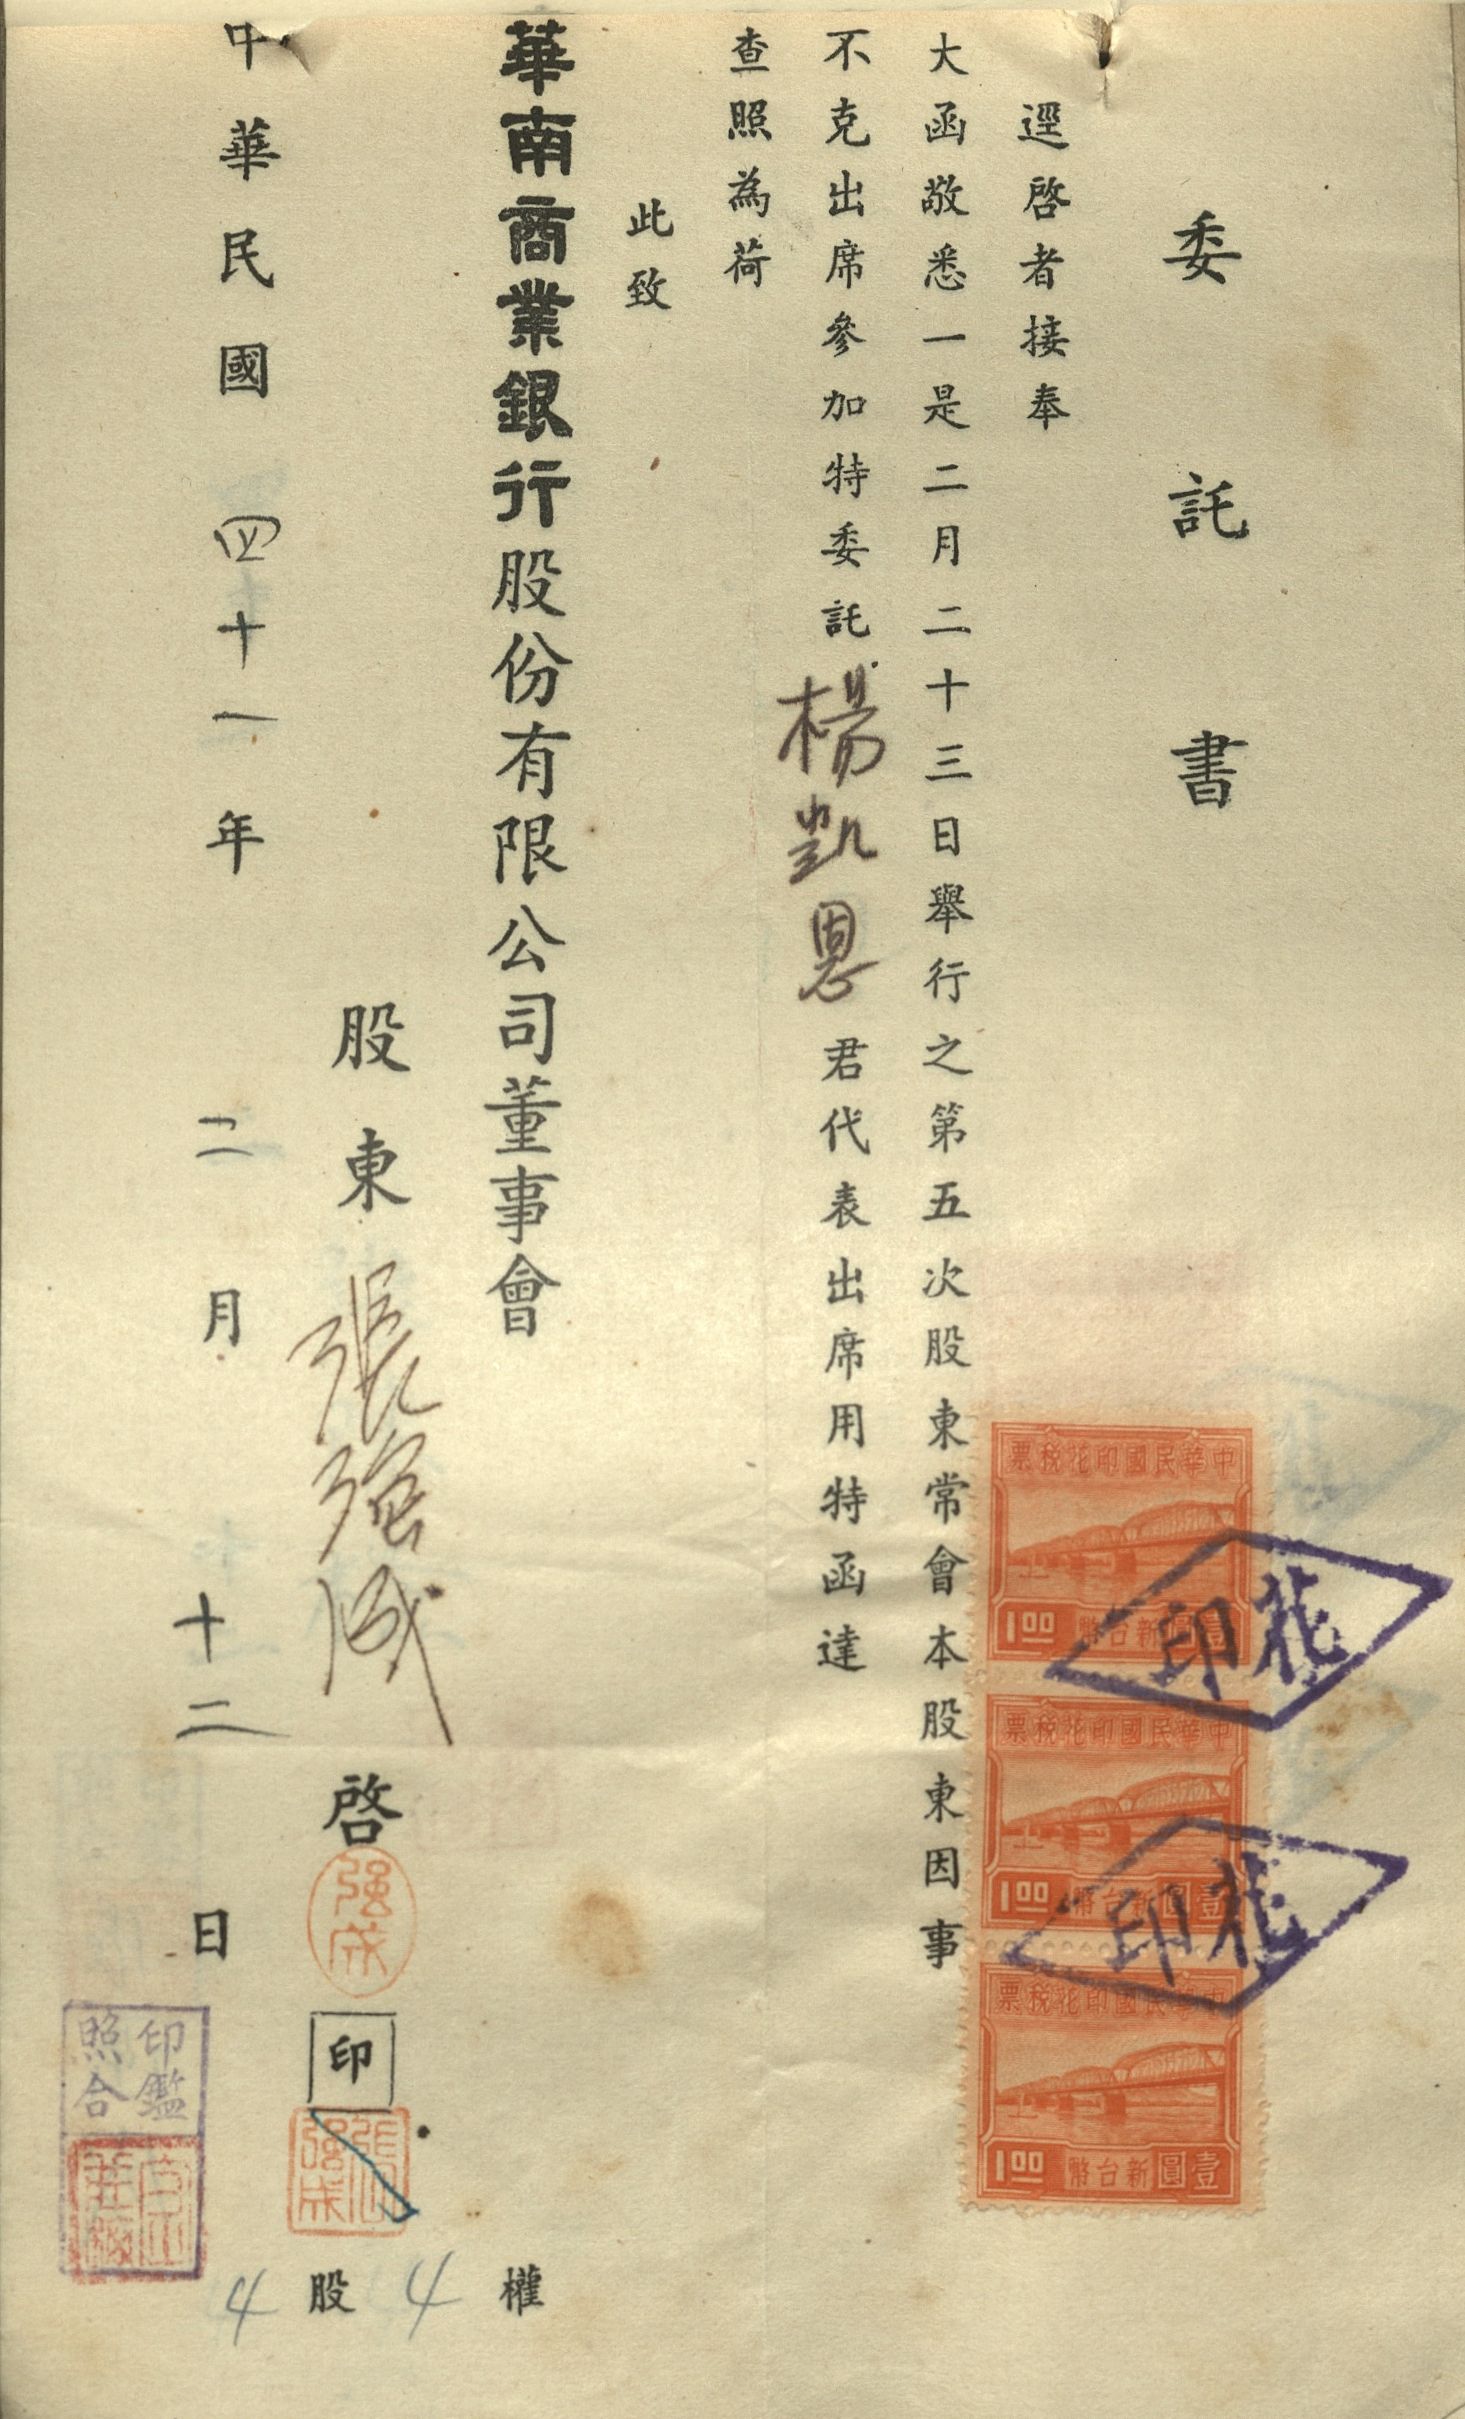 委託書
逕啓者接奉
大函敬悉一是二月二十三日舉行之第五次股東常會本股東因事
不克出席參加特委託楊凱恩君代表出席用特函達
查照為荷
此致
華南商業銀行股份有限公司董事會
股東張強成啓
強成
印
張強成
4股4權
中華民國四十一年二月十二日
印鑑
照合
票稅花印國民華中
1.00 幣台新圓壹
票稅花印國民華中
1.00 幣台新圓壹
票稅花印國民華中
1.00 幣台新圓壹
印花
印花